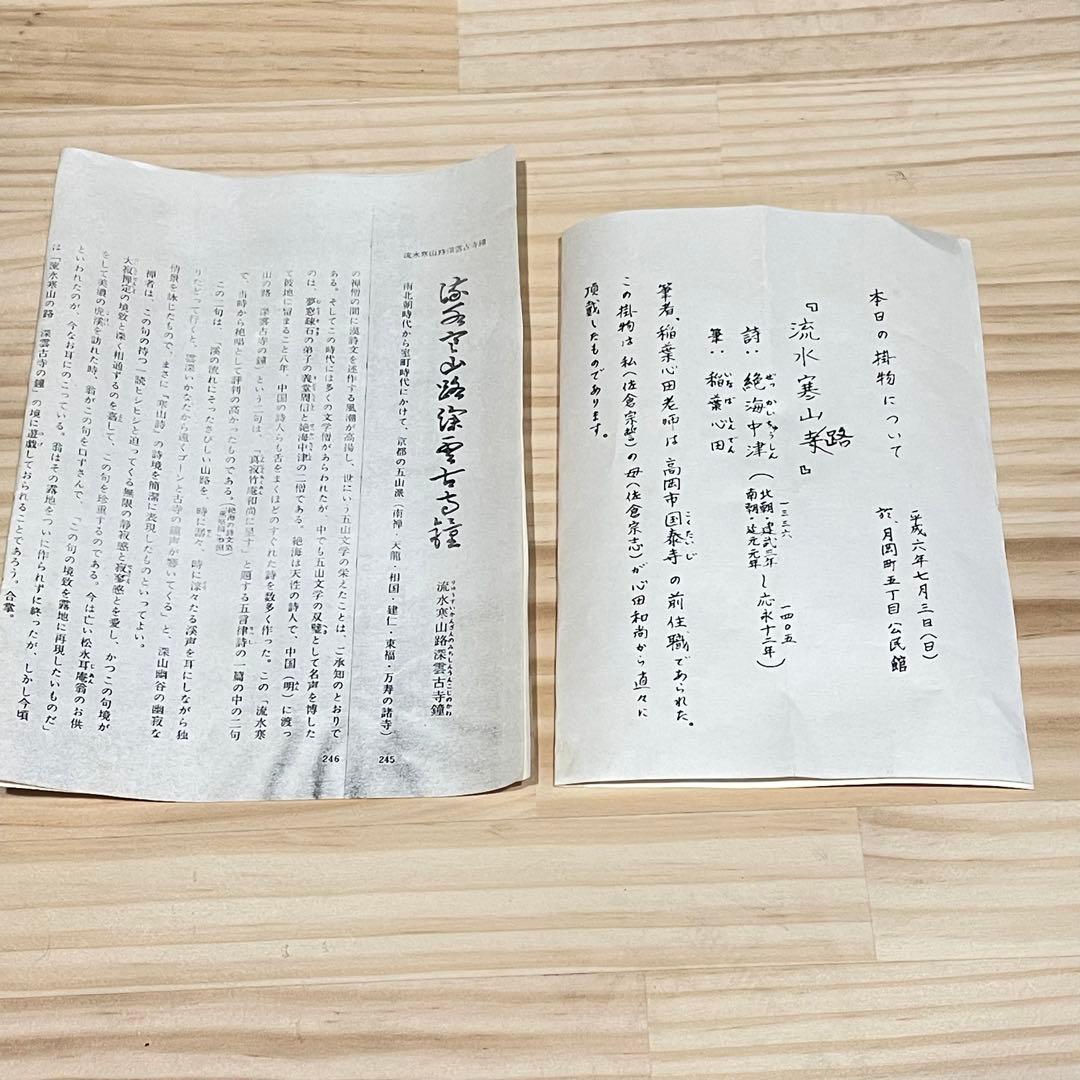 本日の掛物について
(平成六年七月三日(日)
於、月岡町五丁目公民館
『流水寒山路』
詩:絶海中津(北朝・建武三年 南朝・延元元年 し応永十二年)
ぜっかいちゅうしん
一三三六
一四〇五
筆:稲葉心田
いなば しんでん
筆者、稲葉心田老師は高岡市国泰寺の前住職であられた。
こくたいじ
この掛物は私(佐倉宗 )の母(佐倉宗志)が心田和尚から直々に
頂戴したものであります。
流水寒山路深雲古寺鐘
流水寒山路深雲古寺鐘
流水寒山路深雲古寺鐘
りゅうすいかんざんのみちしんうんこじのかね
南北朝時代から室町時代にかけて、京都の五山派(南禅・天龍・相国・建仁・東福・万寿の諸寺)
245
の禅僧の間に漢詩文を述作する風潮が高揚し、世にいう五山文学の栄えたことは、ご承知のとおりで
ある。そしてこの時代には多くの文学僧があらわれたが、中でも五山文学の双璧として名声を博した
のは、夢窓疎石の弟子の義堂周信と絶海中津の二僧である。絶海は天性の詩人で、中国(明)に渡っ
て彼地に留まること八年、中国の詩人らも舌をまくほどのすぐれた詩を数多く作った。この「流水寒
山の路 深雲古寺の鐘」という二句は、「真寂竹庵和尚に呈す」と題する五言律詩の一篇の中の二句
で、当時から絶唱として評判の高かったものである。
この二句は、「渓の流れにそったさびしい山路を、時に潺々、時に淙々たる渓声を耳にしながら独
りたどって行くと、雲深いかなたから遠くゴーンと古寺の鐘声が響いてくる」と、深山幽谷の幽寂な
情景を詠じたもので、まさに「寒山詩」の詩境を簡潔に表現したものといってよい。
禅者は、この句の持つ一読ヒシヒシと迫ってくる無限の静寂感と寂寥感とを愛し、かつこの句境が
大寂禅定の境致と深く相通ずるのを喜して、この句を珍重するのである。今は亡い松永耳庵翁のお供
をして美濃の虎渓を訪れた時、翁がこの句を口ずさんで、「この句の境致を露地に再現したいものだ」
といわれたのが、今なお耳にのこっている。翁はその露地をついに作られずに終ったが、しかし今頃
は「流水寒山の路 深雲古寺の鐘」の境に遊戯しておられることであろう。合掌。
246